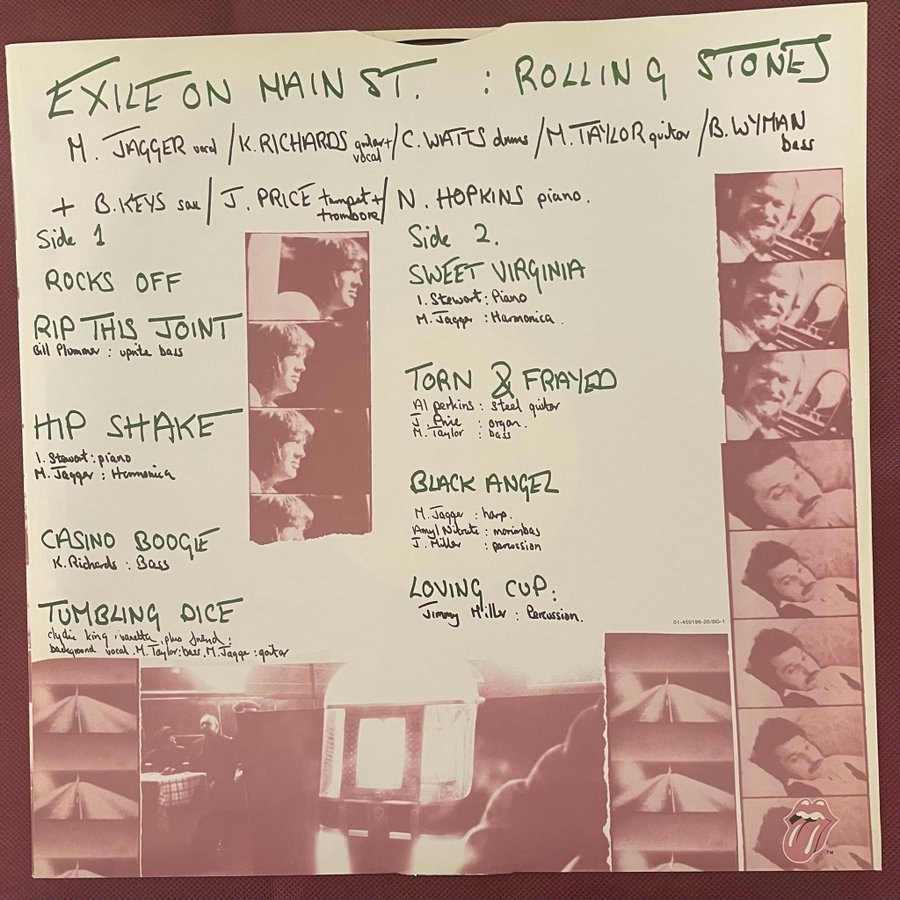 EXILE ON MAIN ST. : ROLLING STONES
M. JAGGER vocal / K. RICHARDS guitar + vocal / C. WATTS drums / M. TAYLOR guitar / B. WYMAN bass
+ B. KEYS sax / J. PRICE trumpet + trombone / N. HOPKINS piano.
Side 1
ROCKS OFF
RIP THIS JOINT
Bill Plummer : uprite bass
HIP SHAKE
I. Stewart : piano
M. Jagger : Harmonica
CASINO BOOGIE
K. Richards : Bass
TUMBLING DICE
clydie king, vanetta, plus friend :
background vocal. M. Taylor : bass. M. Jagge : guitar
Side 2.
SWEET VIRGINIA
I. Stewart : Piano
M. Jagger : Harmonica.
TORN & FRAYED
Al perkins : steel guitar
J. Price : organ.
M. Taylor : bass
BLACK ANGEL
M. Jagge : harp.
Amyl Nitrate : marimbas
J. Miller : percussion
LOVING CUP :
Jimmy Miller : Percussion.
01-450196-20/BG-1
TM